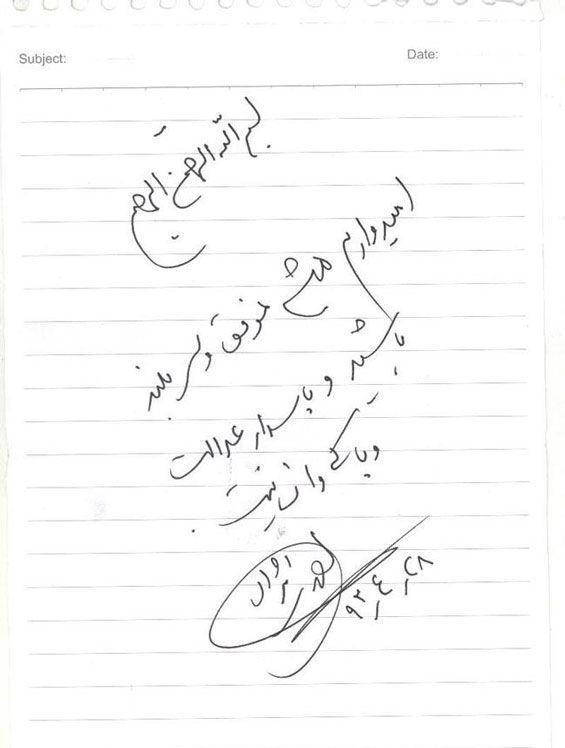 Subject:
Date:
بسم الله الرحمن الرحیم
امیدوارم همه موفق و سر بلند
باشید و پاسدار عدالت
و پاکی و انسانیت.
۹۳/۴/۲۸